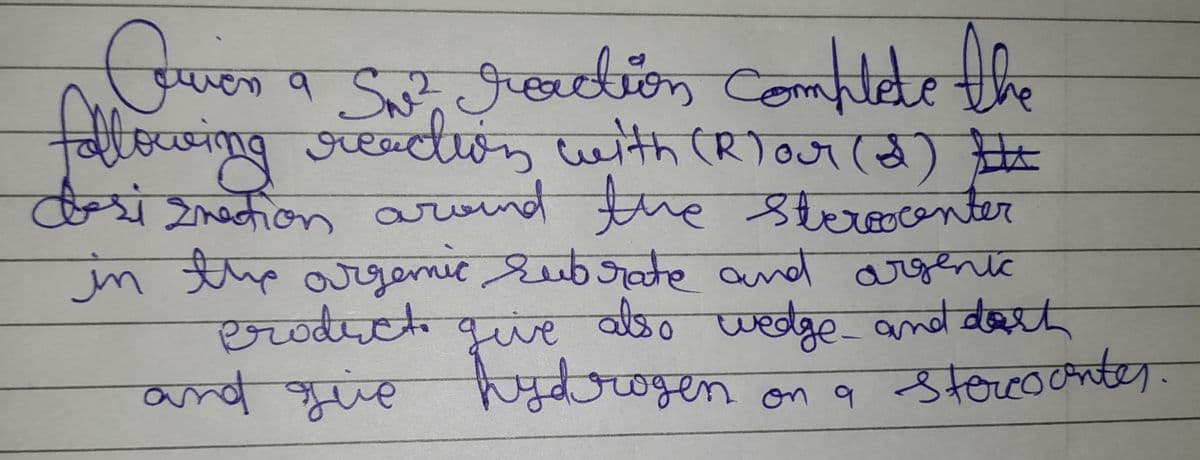 Given a SN2 reaction Complete the
following reaction with (R) or (S)
desiznation around the stereocenter
in the orgenic Subrate and orgenic
product. give also wedge- and dash
and give hydrogen on a stereocenter.